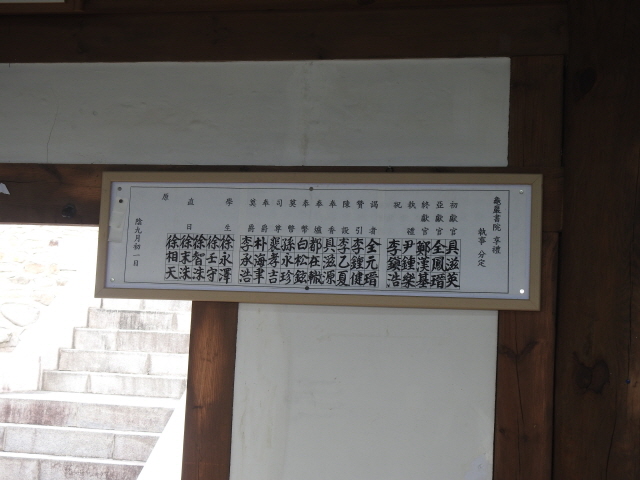 龜巖書院 享禮
執事 分定
初獻官 具滋英
亞獻官 全鳳瑨
終獻官 鄭漢基
執禮 尹鍾樂
祝 李鎭浩
謁者 全元瑨
贊引 李鍾健
陳設 李乙夏
奉香 具滋源
奉爐 都在轍
奉幣 白松
奠幣 孫永珍
司尊 裵孝吉
奉爵 朴海聿
奠爵 李承浩
學生 徐永澤
徐壬守
徐智洙
直日 徐末洙
原 徐相天
陰九月初一日